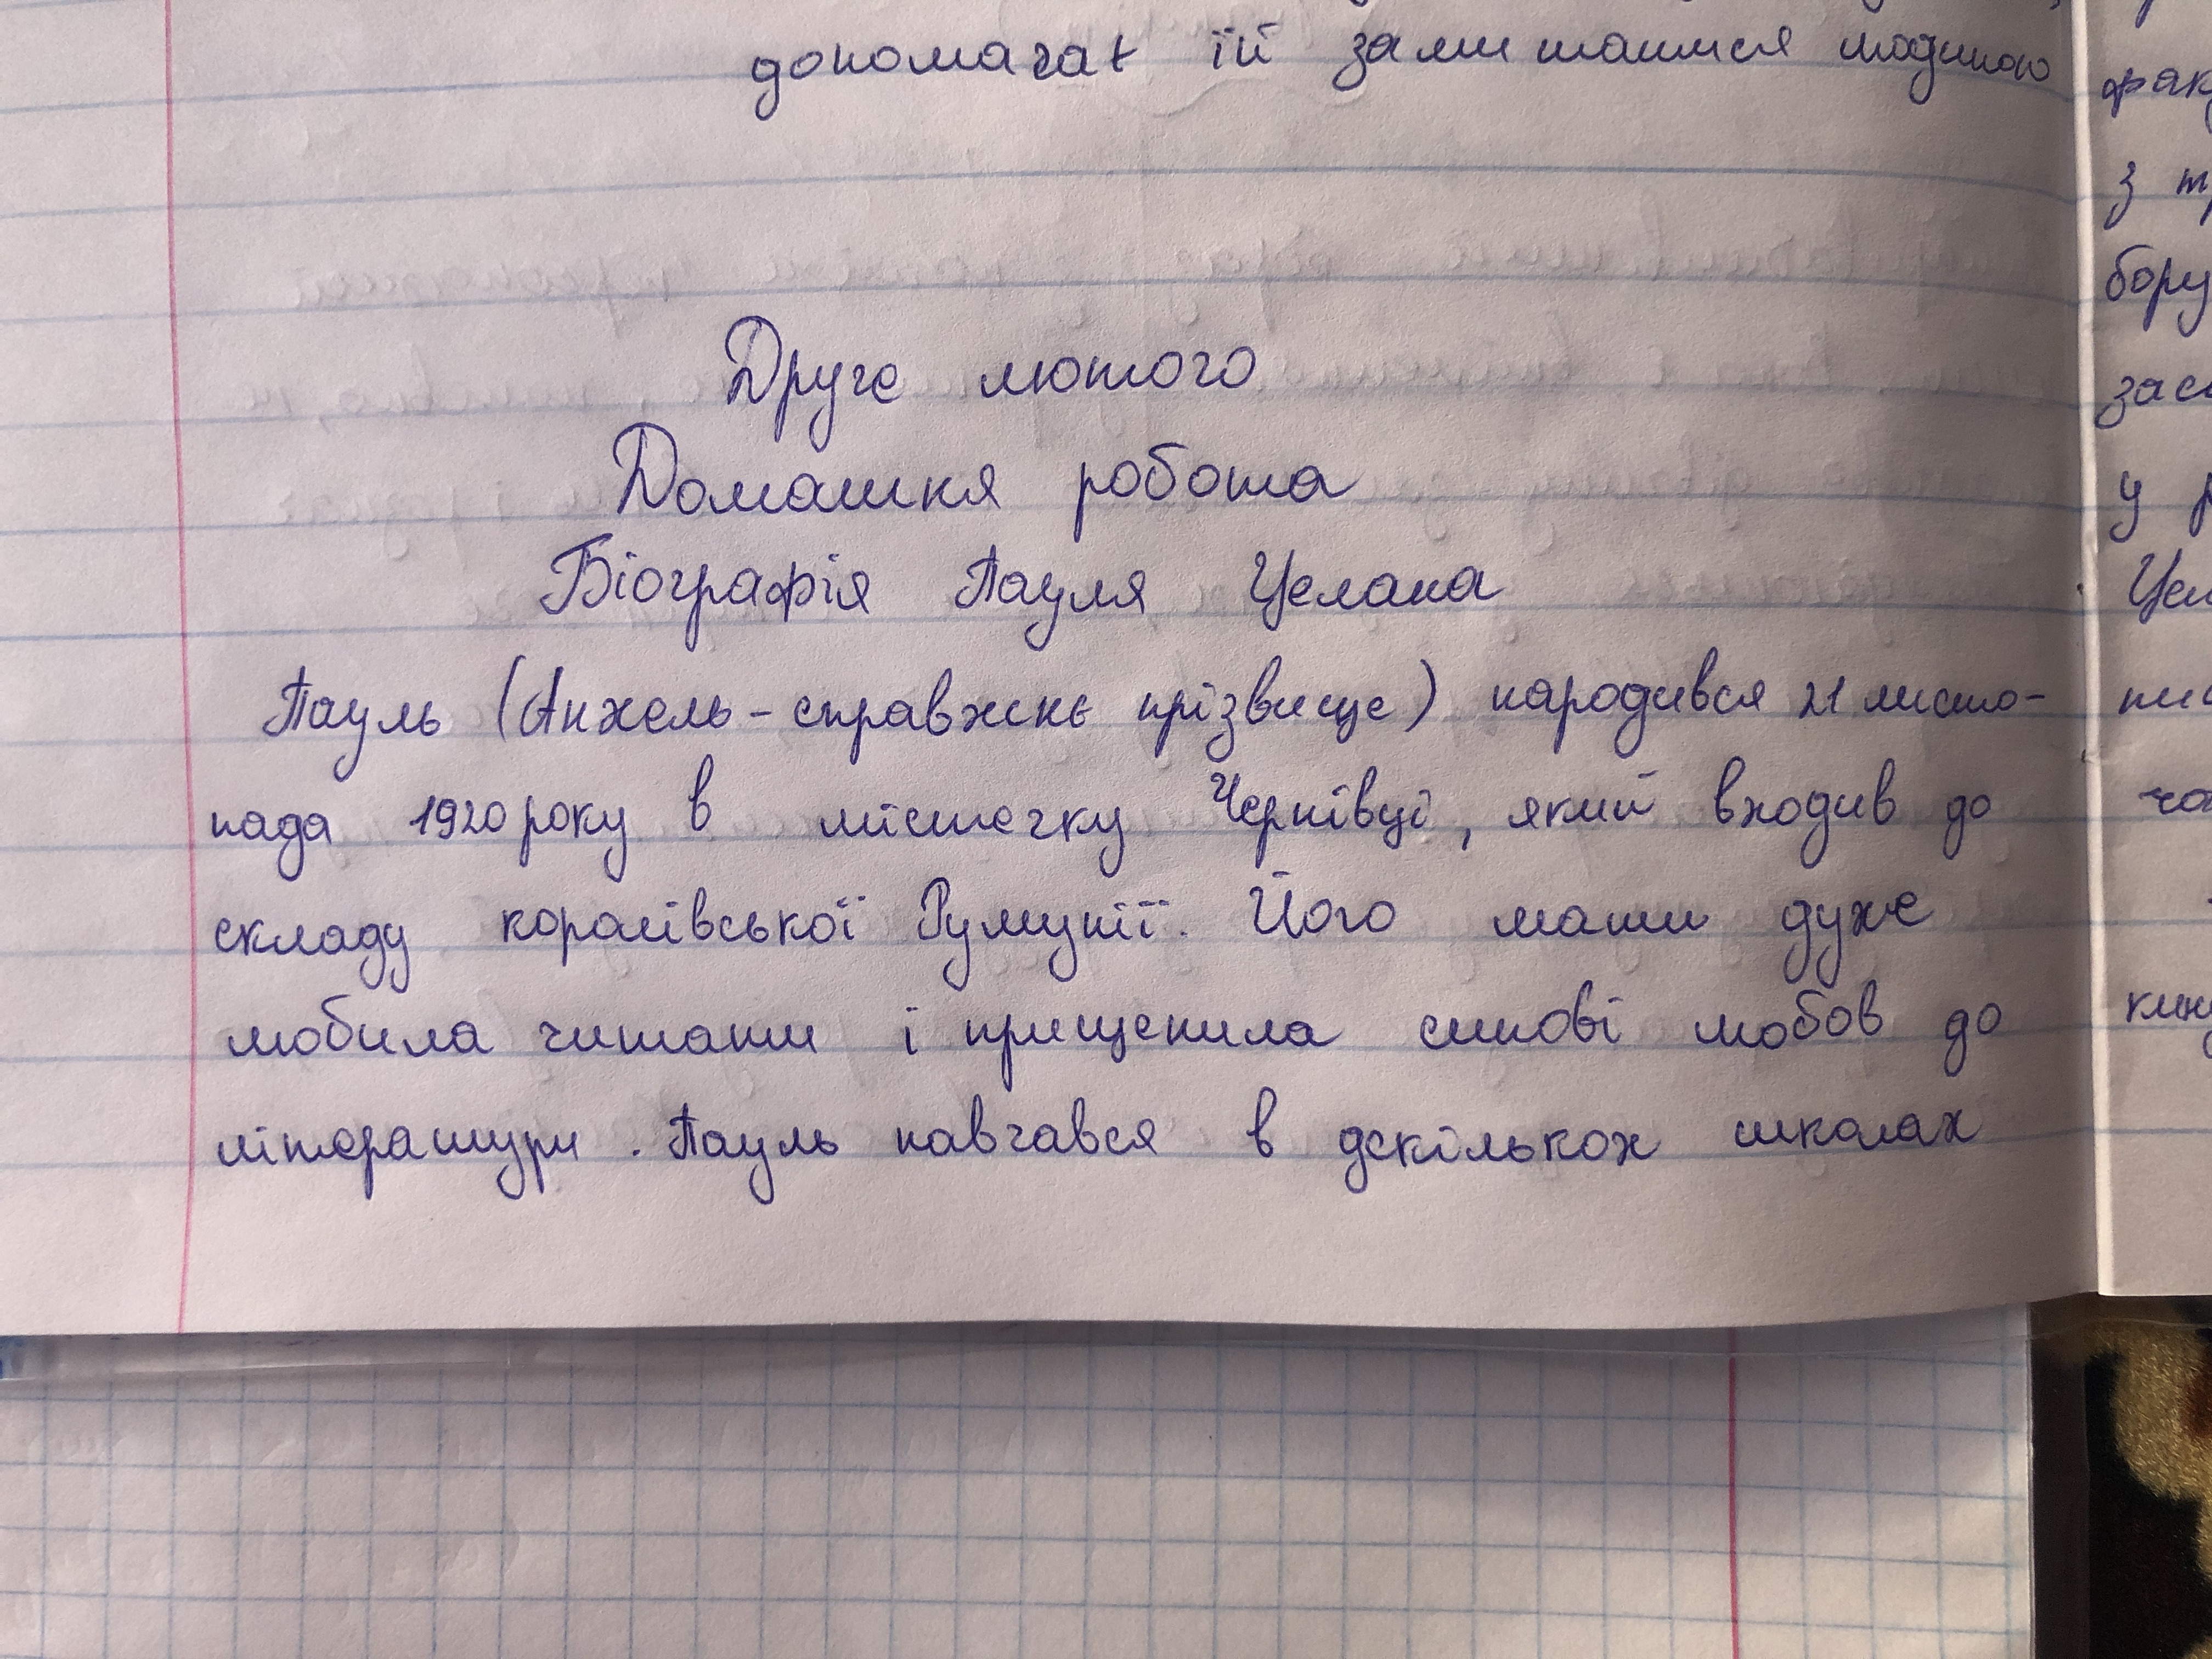 допомагає їй залишатися людиною
Друге лютого
Домашня робота
Біографія Пауля Целана
Пауль (Анхель - справжнє прізвище) народився 21 листо-
пада 1920 року в містечку Чернівці, який входив до
складу королівської Румунії. Його мати дуже
любила читати і прищепила синові любов до
літератури. Пауль навчався в декількох школах
з
у